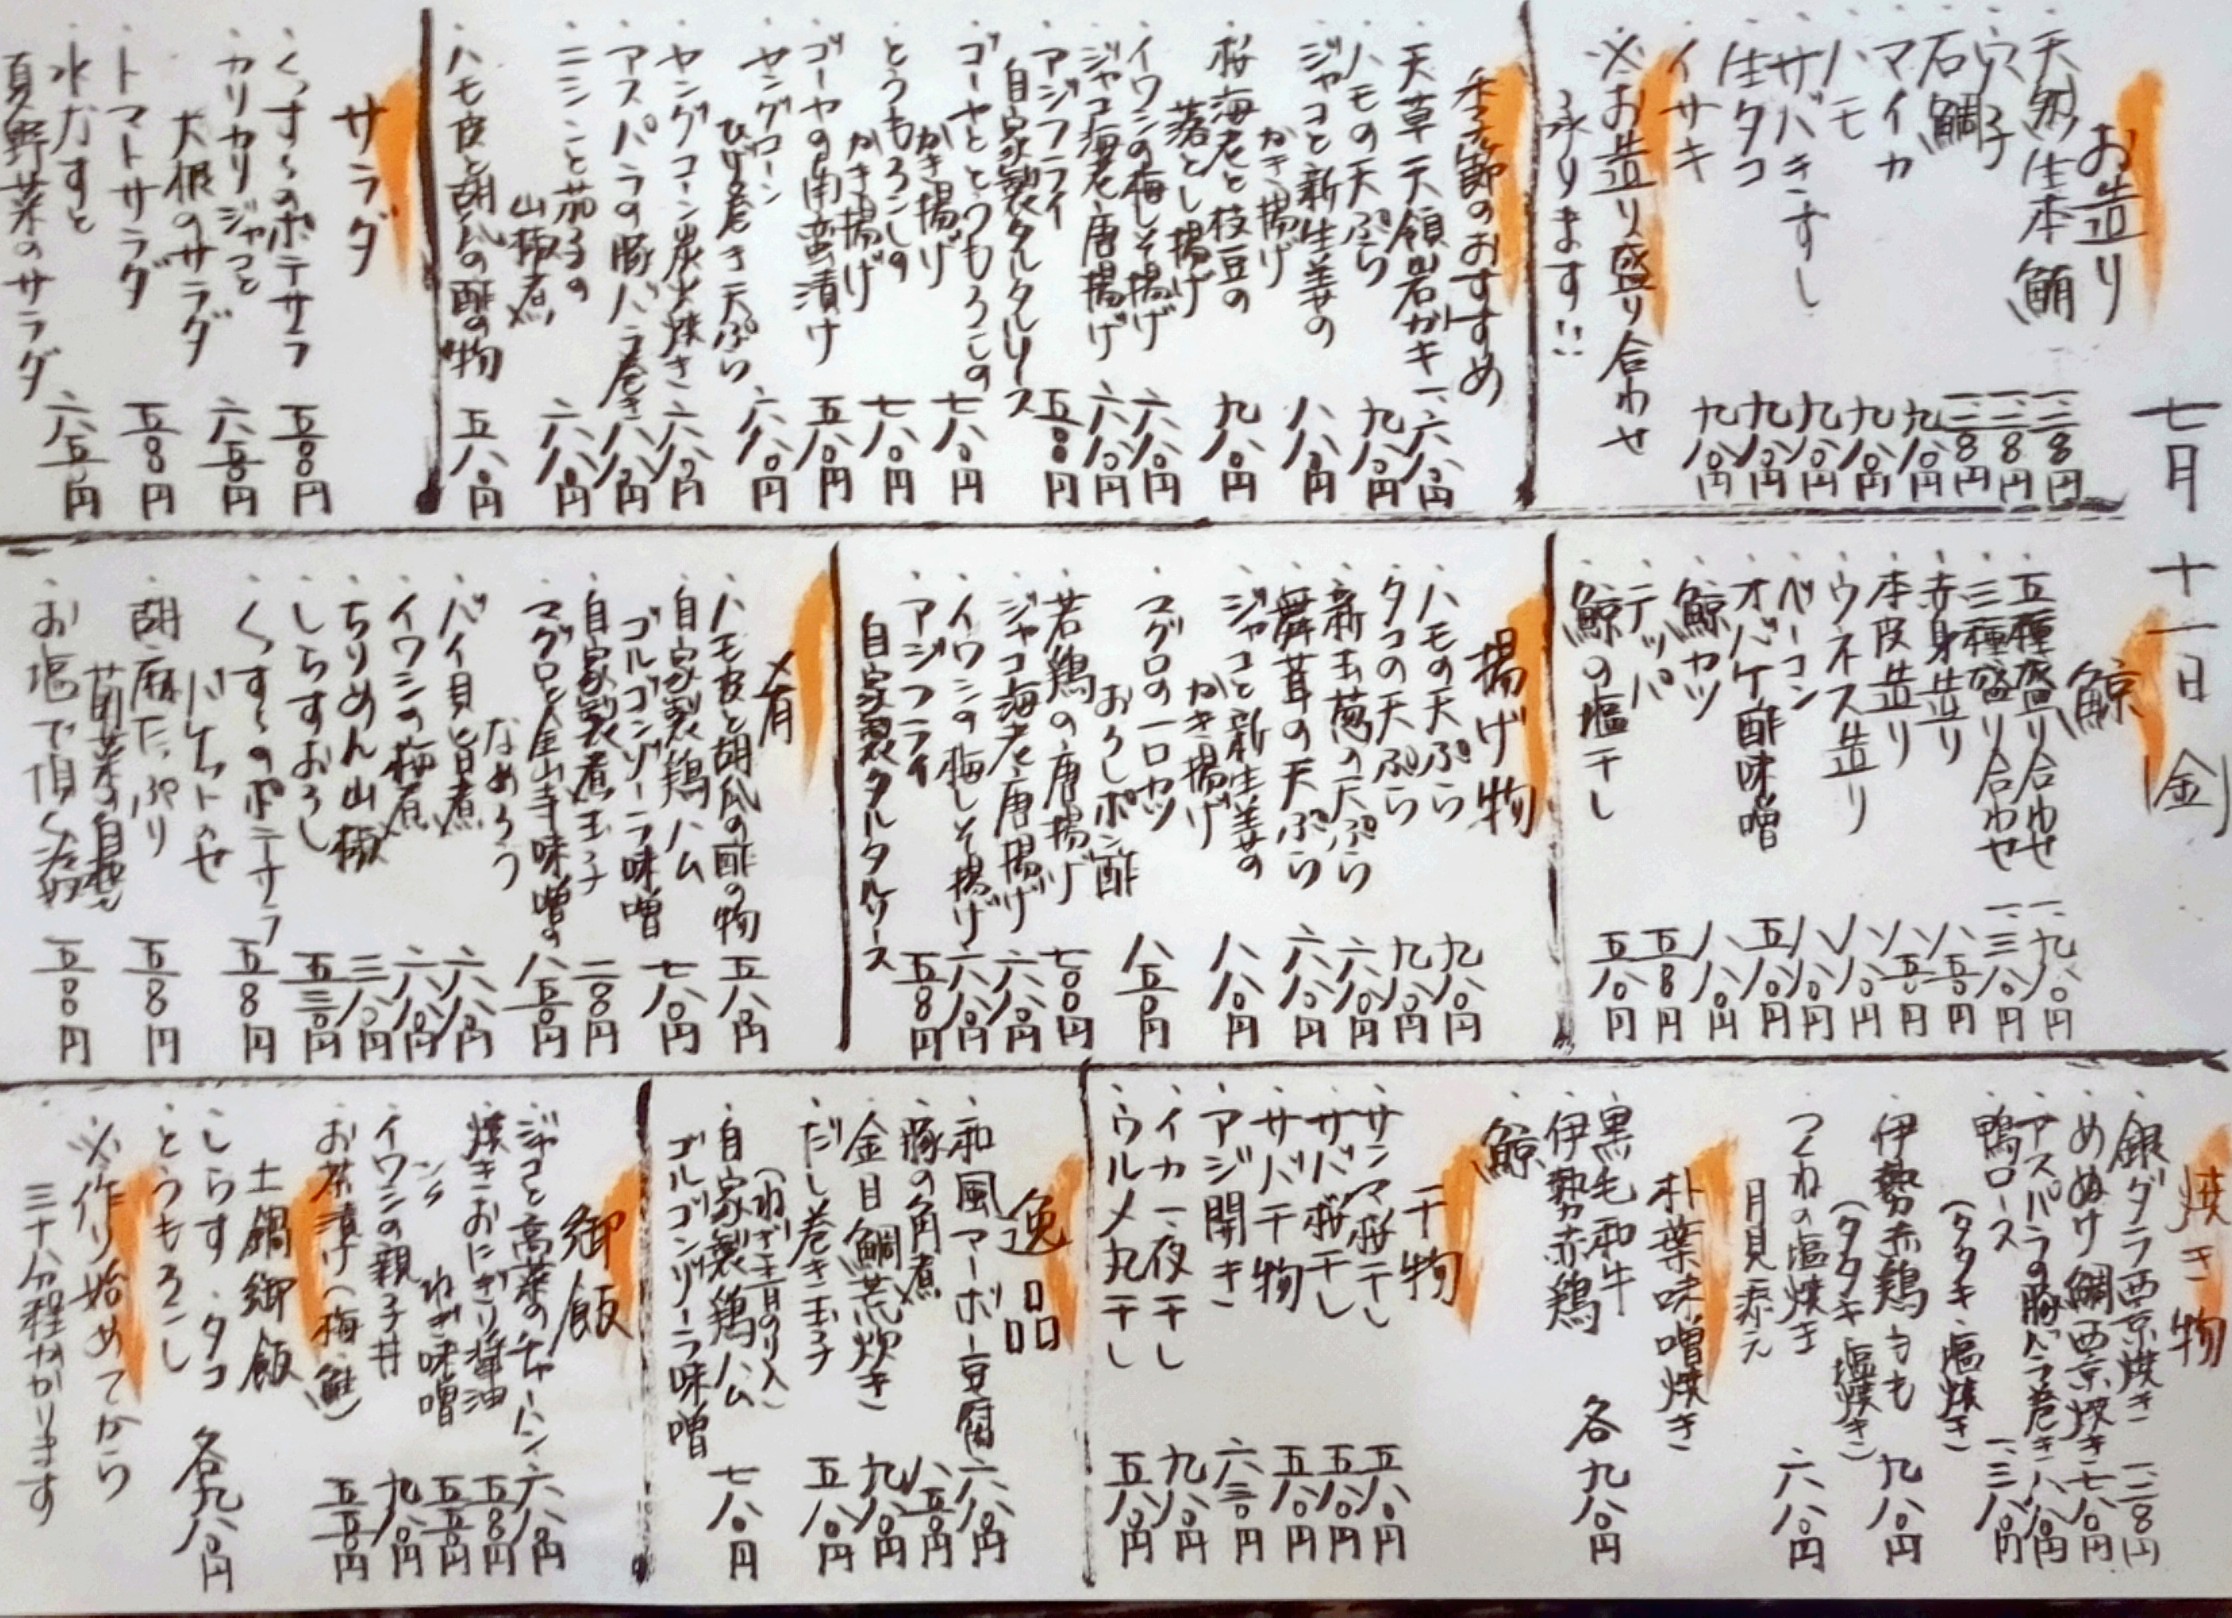 七月十一日(金)
お造り
・天然生本鮪 一、二〇〇円
・穴子 一、二〇〇円
・石鯛 一、二〇〇円
・マイカ 九八〇円
・ハモ 九八〇円
・サバきずし 九八〇円
・生タコ 九八〇円
・イサキ 九八〇円
※お造り盛り合わせ
承ります!!
季節のおすすめ
・天草 天領岩ガキ 一、六八〇円
・ハモの天ぷら 九八〇円
・ジャコと新生姜の
かき揚げ 八八〇円
・桜海老と枝豆の
落とし揚げ 九八〇円
・イワシの梅しそ揚げ 六八〇円
・ジャコ海老唐揚げ 六八〇円
・アジフライ
自家製タルタルソース 五〇〇円
・ゴーヤととうもろこしの
かき揚げ 七八〇円
・とうもろこしの
かき揚げ 七八〇円
・ゴーヤの南蛮漬け 五八〇円
・ヤングコーン
ひげ巻き天ぷら 六八〇円
・ヤングコーン炭火焼き 六八〇円
・アスパラの豚バラ巻き 八八〇円
・ニシンと茄子の
山椒煮 六八〇円
・ハモ皮と胡瓜の酢の物 五八〇円
サラダ
・くっす〜のポテサラ 五〇〇円
・カリカリジャコと
大根のサラダ 六五〇円
・トマトサラダ 五〇〇円
・水なすと
夏野菜のサラダ 六五〇円
鯨
・五種盛り合わせ 一、九八〇円
・三種盛り合わせ 一、三八〇円
・赤身造り 八五〇円
・本皮造り 八五〇円
・ウネス造り 八八〇円
・ベーコン 八八〇円
・オバケ酢味噌 五八〇円
・鯨カツ 八八〇円
・テッパ 五〇〇円
・鯨の塩干し 五八〇円
揚げ物
・ハモの天ぷら 九八〇円
・タコの天ぷら 九八〇円
・新玉葱の天ぷら 六八〇円
・舞茸の天ぷら 六八〇円
・ジャコと新生姜の
かき揚げ 八八〇円
・マグロの一口カツ
おろしポン酢 八五〇円
・若鶏の唐揚げ 七〇〇円
・ジャコ海老唐揚げ 六八〇円
・イワシの梅しそ揚げ 六八〇円
・アジフライ
自家製タルタルソース 五〇〇円
肴
・ハモ皮と胡瓜の酢の物 五八〇円
・自家製鶏ハム
ゴルゴンゾーラ味噌 七八〇円
・自家製煮玉子 二〇〇円
・マグロと金山寺味噌の
なめろう 八五〇円
・バイ貝旨煮 六八〇円
・イワシの梅煮 六八〇円
・ちりめん山椒 三八〇円
・しらすおろし 五三〇円
・くっす〜のポテサラ
バケットのせ 五〇〇円
・胡麻たっぷり
菊菜の白和え 五〇〇円
・お塩で頂く冷奴 五〇〇円
焼き物
・銀ダラ西京焼き 一、二〇〇円
・めぬけ鯛西京焼き 七八〇円
・アスパラの豚バラ巻き 八八〇円
・鴨ロース
(タタキ・塩焼き) 一、三八〇円
・伊勢赤鶏もも
(タタキ・塩焼き) 九八〇円
・つくねの塩焼き
月見添え 六八〇円
朴葉味噌焼き
・黒毛和牛
・伊勢赤鶏 各九八〇円
・鯨
干物
・サンマ桜干し 五八〇円
・サバ桜干し 五八〇円
・サバ干物 五八〇円
・アジ開き 六三〇円
・イカ一夜干し 九八〇円
・ウルメ丸干し 五八〇円
逸品
・和風マーボー豆腐 六八〇円
・豚の角煮 八五〇円
・金目鯛荒炊き 九八〇円
・だし巻き玉子
(ねぎ・青のり入) 五八〇円
・自家製鶏ハム
ゴルゴンゾーラ味噌 七八〇円
御飯
・ジャコと高菜のチャーハン 六八〇円
・焼きおにぎり醤油 五〇〇円
〃 ねぎ味噌 五五〇円
・イワシの親子丼 九八〇円
・お茶漬け(梅・鮭) 五五〇円
土鍋御飯
・しらす・タコ
・とうもろこし 各九八〇円
※作り始めてから
三十分程かかります